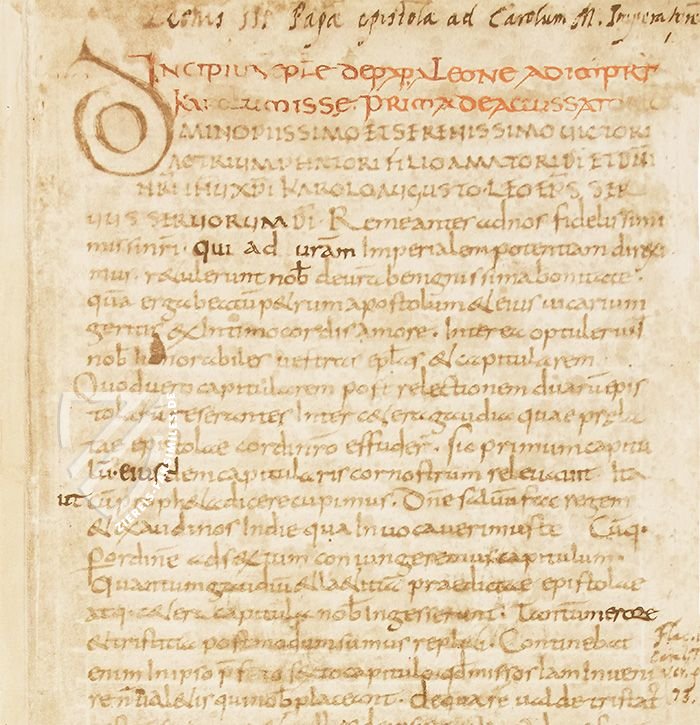 Leonis III Papae epistola ad Carolum M. Imperatorem
INCIPIUNT EPLE DE PAPA LEONE AD IMPRT
KAROLUM ISSE PRIMA DE ACCUSSATO
DOMINO PIISSIMO ET SERENISSIMO VICTORI
AC TRIUMPHATORI FILIO AMATORI DI ET DNI
NRI IHU XPI KAROLO AUGUSTO. LEO EPS SER
UUS SERUORUM DI. Remeantes ad nos fidelissimi
missi nri. qui ad uram Imperialem potentiam direxi
mus. retulerunt nob de ura benignissima bonitate.
qua erga beatu petrum apostolum & eius uicarium
geritis & Intimo cordis amore. Interea optulerunt
nob honorabiles uestras eplas & capitularem
Quod uero capitularem post relectionem duaru epis
tolaru reserantes Inter cetera gaudia quae prela
tae epistolae cordi nro effuder. sic primum capitu
lu. eiusdem capitularis cor nostrum releuauit Ita
ut cu propheta dicere cupimus. Dne saluu fac regem
& exaudi nos In die qua Inuocauerimus te Cuq.
p ordine ad sextum coniungeremus capitulum.
Quantum gaudiu & laetitia praedictae epistolae
atq. cetera capitula nob Ingesserunt. Tantu merore
& tristitia postmodum sumus repleti. Continebat
enim In ipso pfato sexto capitulo qd missos Iam Inueni
re n ualetis qui nob placeant. de qua re ualde tristat